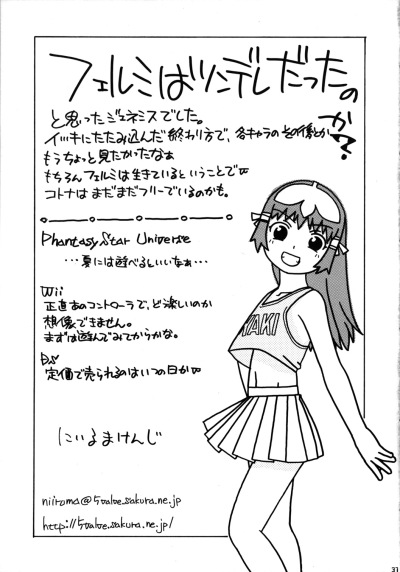 フェルミはツンデレだったのか?
と思ったジェネシスでした。
イッキにたたみ込んだ終わり方で、各キャラのその後とか
もうちょっと見たかったなぁ
もちろんフェルミは生きているということで
コトナはまだまだフリーでいるのかも。
Phantasy Star Universe
…夏には遊べるといいなぁ…
Wii
正直あのコントローラで、ど楽しいのか
想像できません。
まずは遊んでみてからかな。
DS
定価で売られるのはいつの日か
にいるまけんじ
AYAKI
niiruma@5valve.sakura.ne.jp
http://5valve.sakura.ne.jp/
37